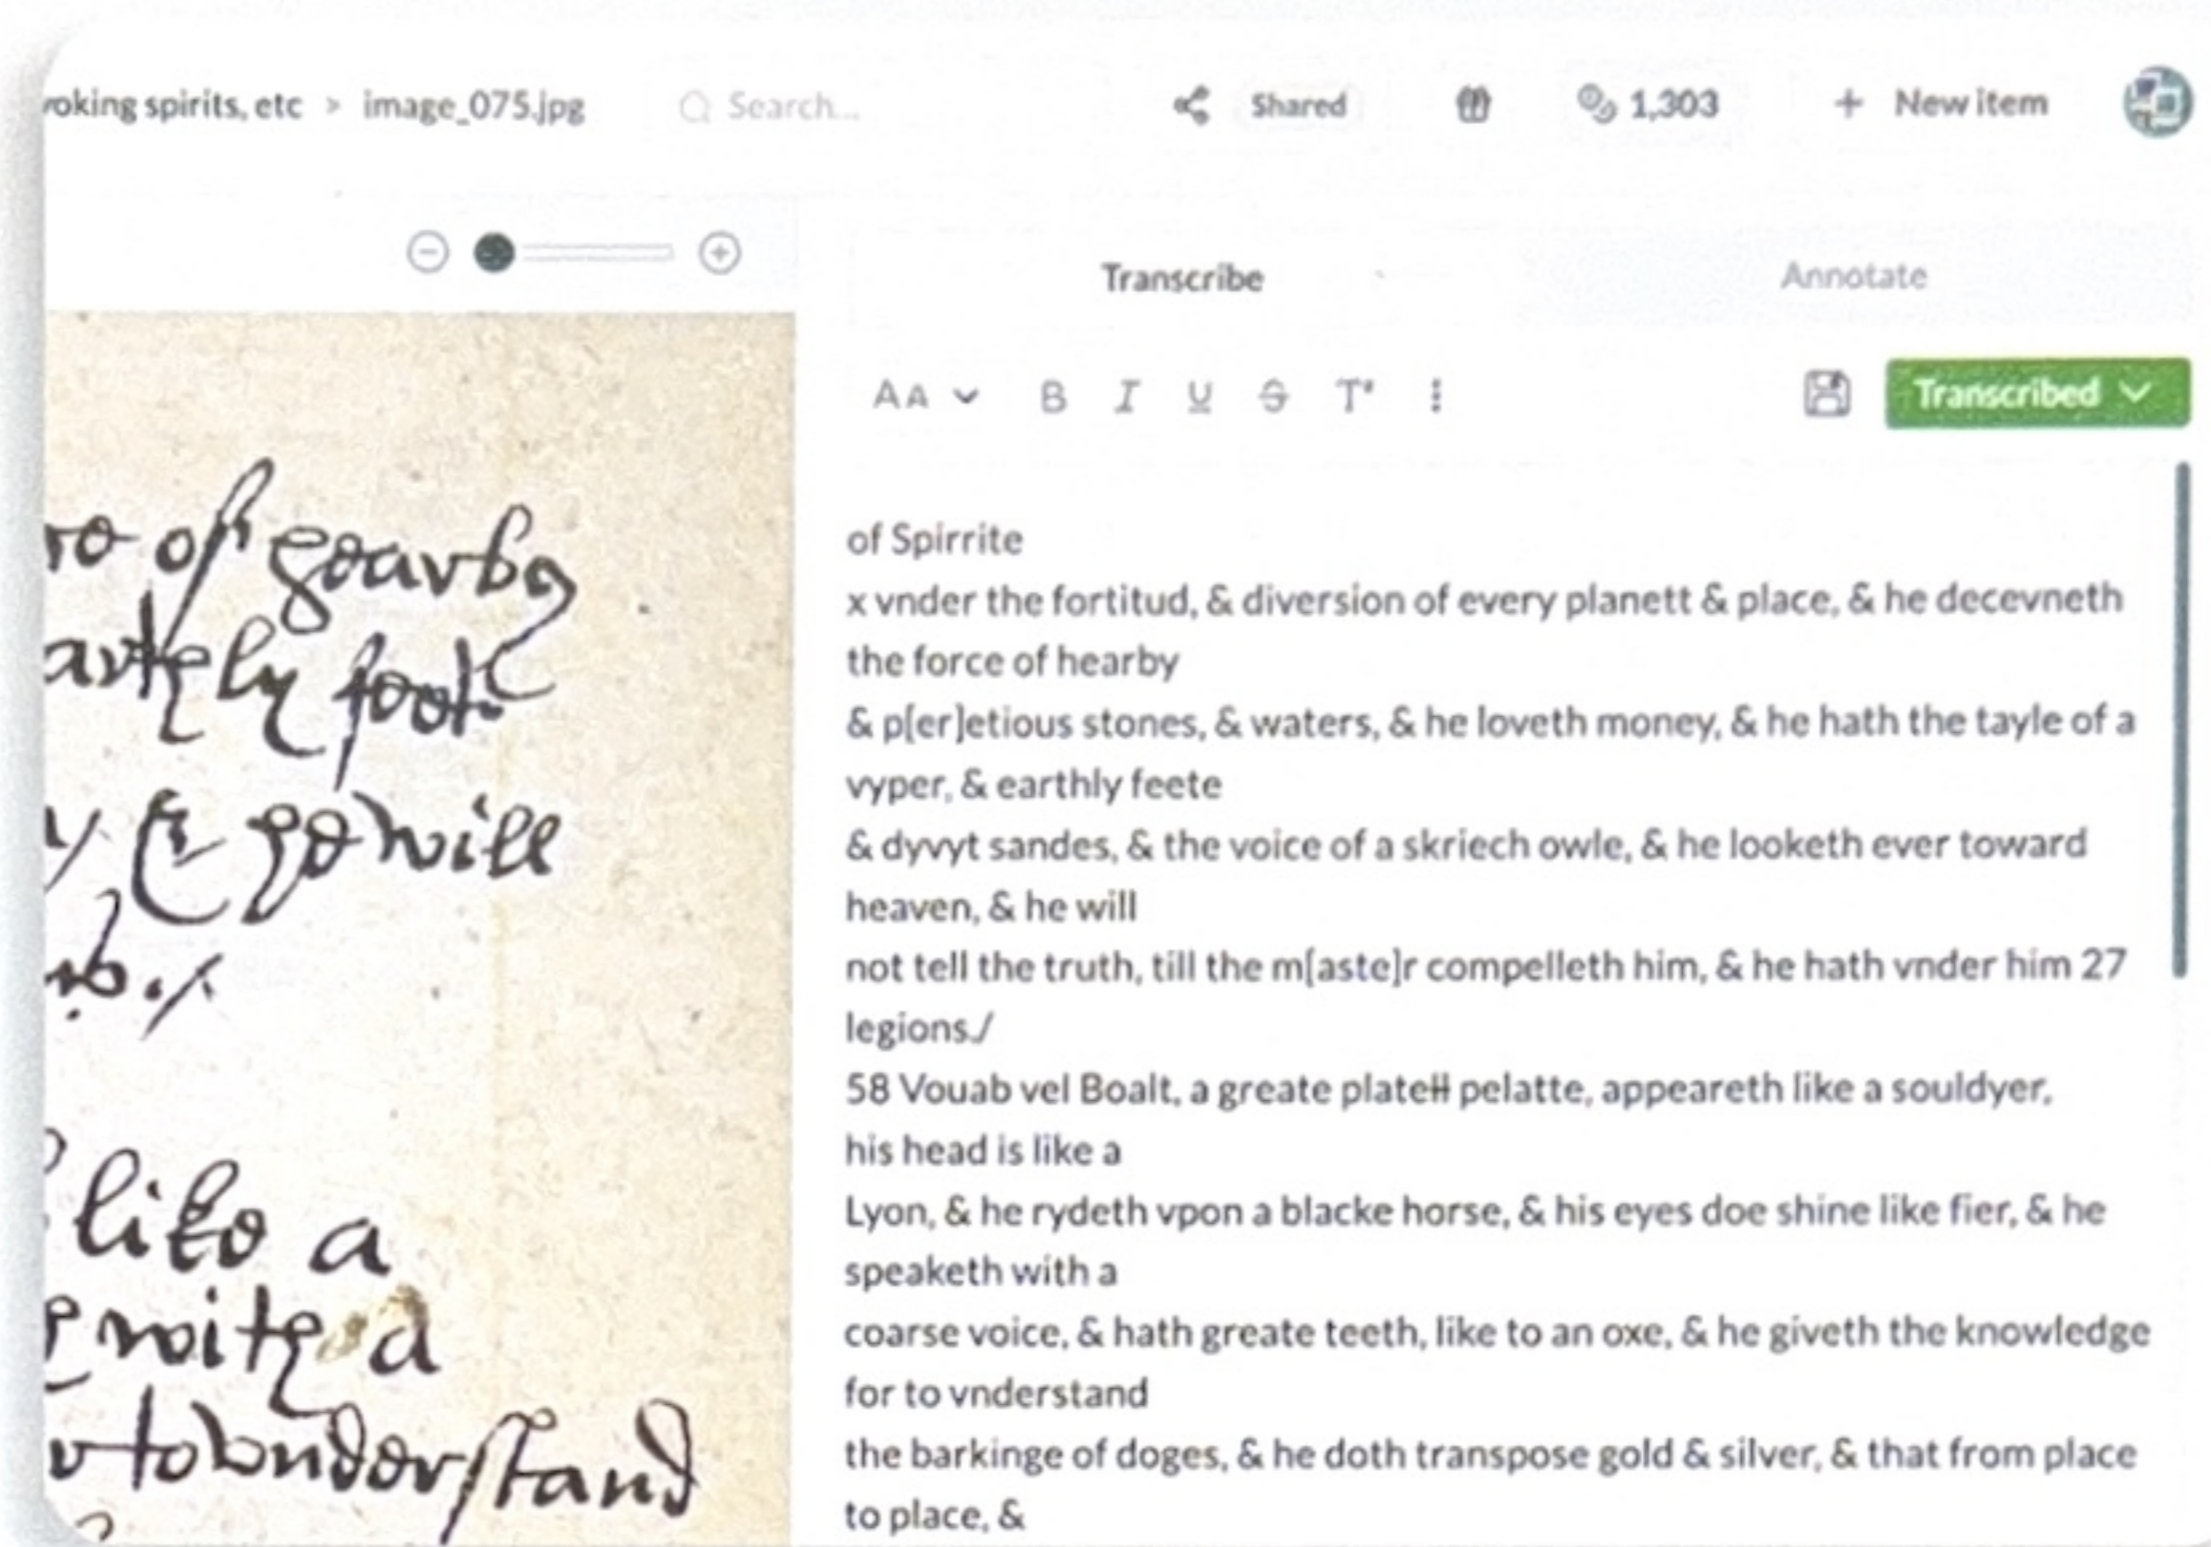 roking spirits, etc > image_075.jpg
Search...
Shared
1,303
+ New item
Transcribe
Annotate
AA B I U S T
Transcribed
of hearby
earthly feete
& he will
like a
with a
to vnderstand
of Spirrite
x vnder the fortitud, & diversion of every planett & place, & he decevneth
the force of hearby
& p[er]etious stones, & waters, & he loveth money, & he hath the tayle of a
vyper, & earthly feete
& dyvyt sandes, & the voice of a skriech owle, & he looketh ever toward
heaven, & he will
not tell the truth, till the m[aste]r compelleth him, & he hath vnder him 27
legions./
58 Vouab vel Boalt, a greate platell pelatte, appeareth like a souldyer,
his head is like a
Lyon, & he rydeth vpon a blacke horse, & his eyes doe shine like fier, & he
speaketh with a
coarse voice, & hath greate teeth, like to an oxe, & he giveth the knowledge
for to vnderstand
the barkinge of doges, & he doth transpose gold & silver, & that from place
to place, &